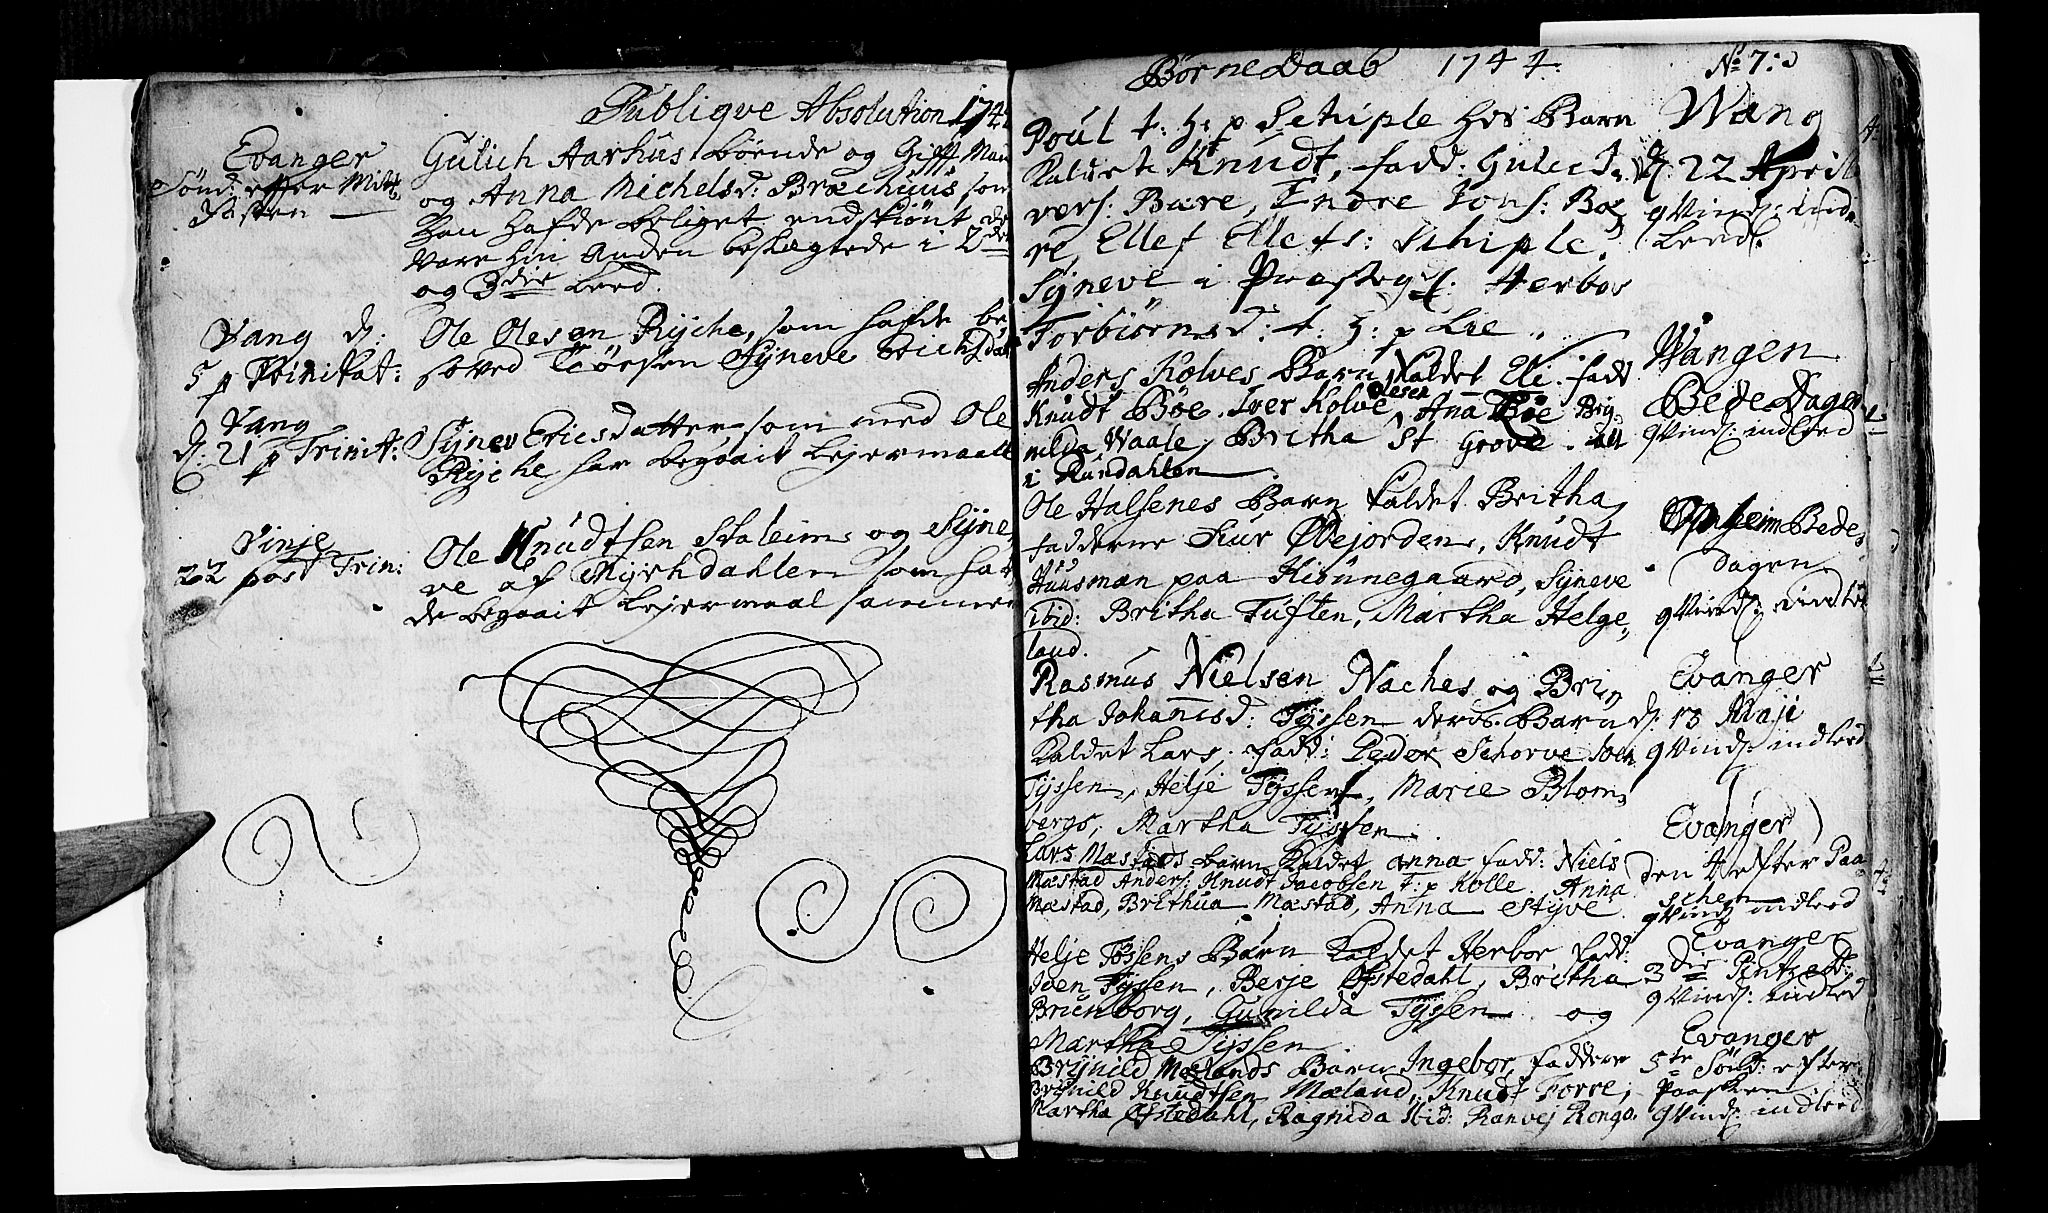 Publiqve Absolution 174
Evanger
Sönd: effter Mitt
Fasten
Gulich Aarhus böende og Gifft Man
og Anna Michelsd: Bræchuus, som
han hafde beliget endskiönt de
vare hin Anden beslægtede i 2den
og 3die Leed.
Vang d:
5 p Trinitat:
Ole Olesen Ryche, som hafde be
soved Tösen Syneve Erichsdatt
Vang
d: 21 p Trinit:
Synev Ericsdatter som med Ole
Ryche har begaait Lejermaall
Vinje
22 post Trin:
Ole Knudtsen Staleim og Syne,
ve af Myrkdahlen som haf
de begaait Lejermaal sammen
Börne Daab 1744. No 7:
Poul t: h: p Schiple hos Barn
kaldet Knudt, fadd: Gulle I,
vers: Bære, Endre Jons: Bæ,
re, Ellef Ellefs: Schiple,
Syneve i Præsteg: Herbor
Torbiörnsd: t: h: p Lie
Wang
d: 22 April
qvind: indle
Leed.
Anders Kolves Barn kaldet Eli. fadd
Knudt Böe. Iver Kolve, Ana Böe Bry,
nilda Waale, Britha St Grove. all
i Rundahlen
Wangen
Bede Dagen
qvind: indleed
Ole Halsenes Barn kaldet Britha,
fadderne Siur Övejorden, Knudt
Huusman paa Hiönnegaard, Syneve
ibid: Britha Tuften, Martha Helge,
land.
Opheim Bede,
dagen
qvind: indle
Rasmus Nielsen Naches og Bri,
tha Johannisd: Tyssen deres Barn
kaldet Lars, fadd: Peder Schorve Iven
Tyssen, Helje Tyssen, Marie Blom,
bergs, Martha Tyssen
Evanger
d: 13 Maji
qvind: indleed
Lars Mæstads barn kaldet Anna fadd: Niels
Mæstad Anders: Knudt Jacobsen t: p Kolle. Anna
Mæstad, Brithua Mæstad, Anna Styve
Evanger
den 4 efter Paa
schen
qvind indleed
Helje Tössens Barn kaldet Herbor, fadd:
Iven Tyssen, Berje Öfstedahl, Britha
Brunborg, Gunilda Tyssen og
Martha Tyssen
Evanger
3die Pintzed:
qvind: indled
Brynild Mælands Barn Ingebor, faddere
Brynild Knudtsen Mæland, Knudt Torre,
Martha Öfstedahl, Ragnida Ibid: Ranvej Rongo.
Evanger
5te Sönd: efter
Paaschen
qvind: indleed